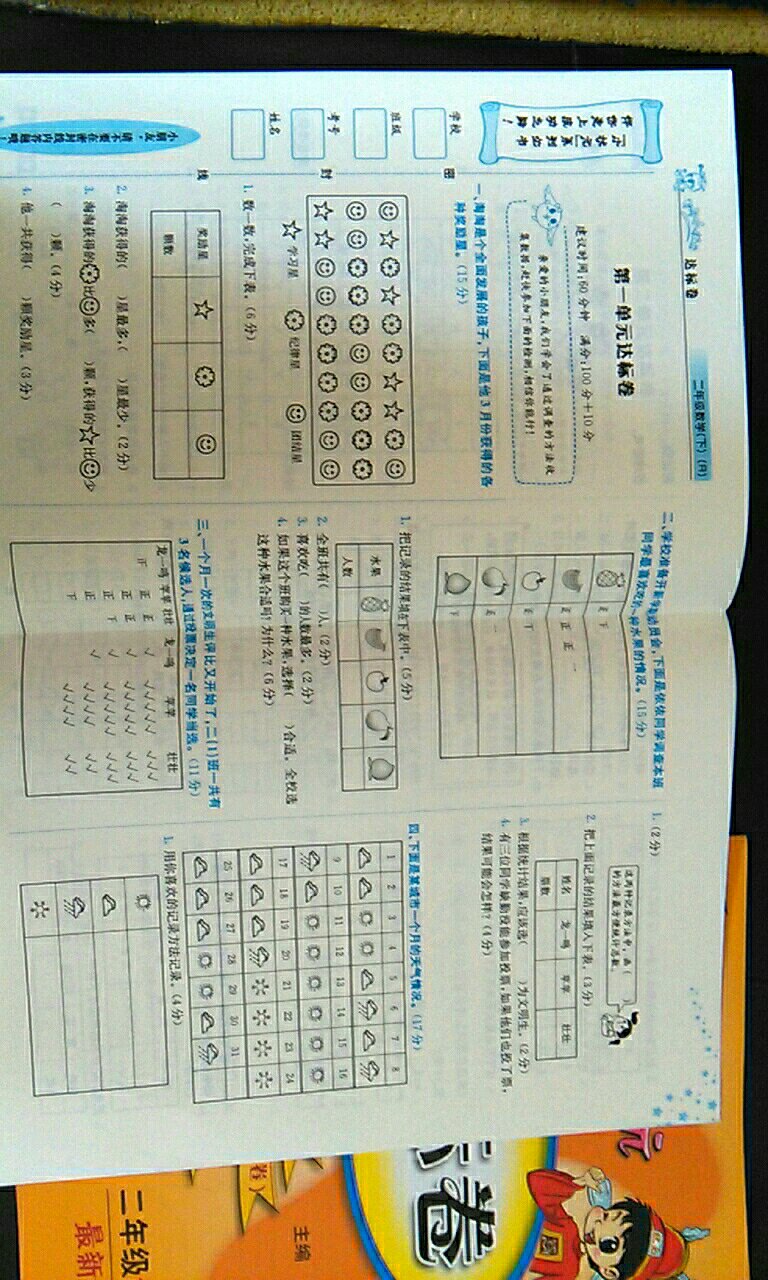 达标卷
二年级数学(下)(R)
学校
班级
考号
姓名
密
封
线
小朋友,请不要在密封线内答题哦!
第一单元达标卷
建议时间:60分钟 满分:100分+10分
亲爱的小朋友,我们学会了通过调查的方法收
集数据,赶快参加下面的检测,相信你能行!
一、淘淘是个全面发展的孩子,下面是他3月份获得的各
种奖励星。(15分)
学习星 纪律星 团结星
1. 数一数,完成下表。(6分)
奖励星
颗数
2. 淘淘获得的( )星最多,( )星最少。(2分)
3. 淘淘获得的 比 多( )颗,获得的 比 少
( )颗。(4分)
4. 他一共获得( )颗奖励星。(3分)
二、学校准备开 ,下面是依依同学调查本班
同学最喜欢吃的一种水果的情况。(15分)
正 下
正 正 正 一
正 下
正 一
下
1. 把记录的结果填在下表中。(5分)
水果
人数
2. 全班共有( )人。(2分)
3. 喜欢吃( )的人数最多。(2分)
4. 如果这个班购买一种水果,选择( )合适。全校选
这种水果合适吗?为什么?(6分)
三、一个月一次的文明生评比又开始了,二(1)班一共有
3名候选人,通过投票决定一名同学当选。(11分)
龙一鸣 苹苹 壮壮 龙一鸣 苹苹 壮壮
1. (2分)
这两种记录方法中,画( )
的方法最方便统计总数。
2. 把上面记录的结果填入下表。(3分)
姓名 龙一鸣 苹苹 壮壮
票数
3. 根据统计结果,应该选( )为文明生。(2分)
4. 有三位同学缺勤没能参加投票,如果他们也投了票,
结果可能会怎样?(4分)
四、下面是某城市一个月的天气情况。(17分)
1 2 3 4 5 6 7 8
9 10 11 12 13 14 15 16
17 18 19 20 21 22 23 24
25 26 27 28 29 30 31
1. 用你喜欢的记录方法记录。(4分)
卷
二年级
最新
主编